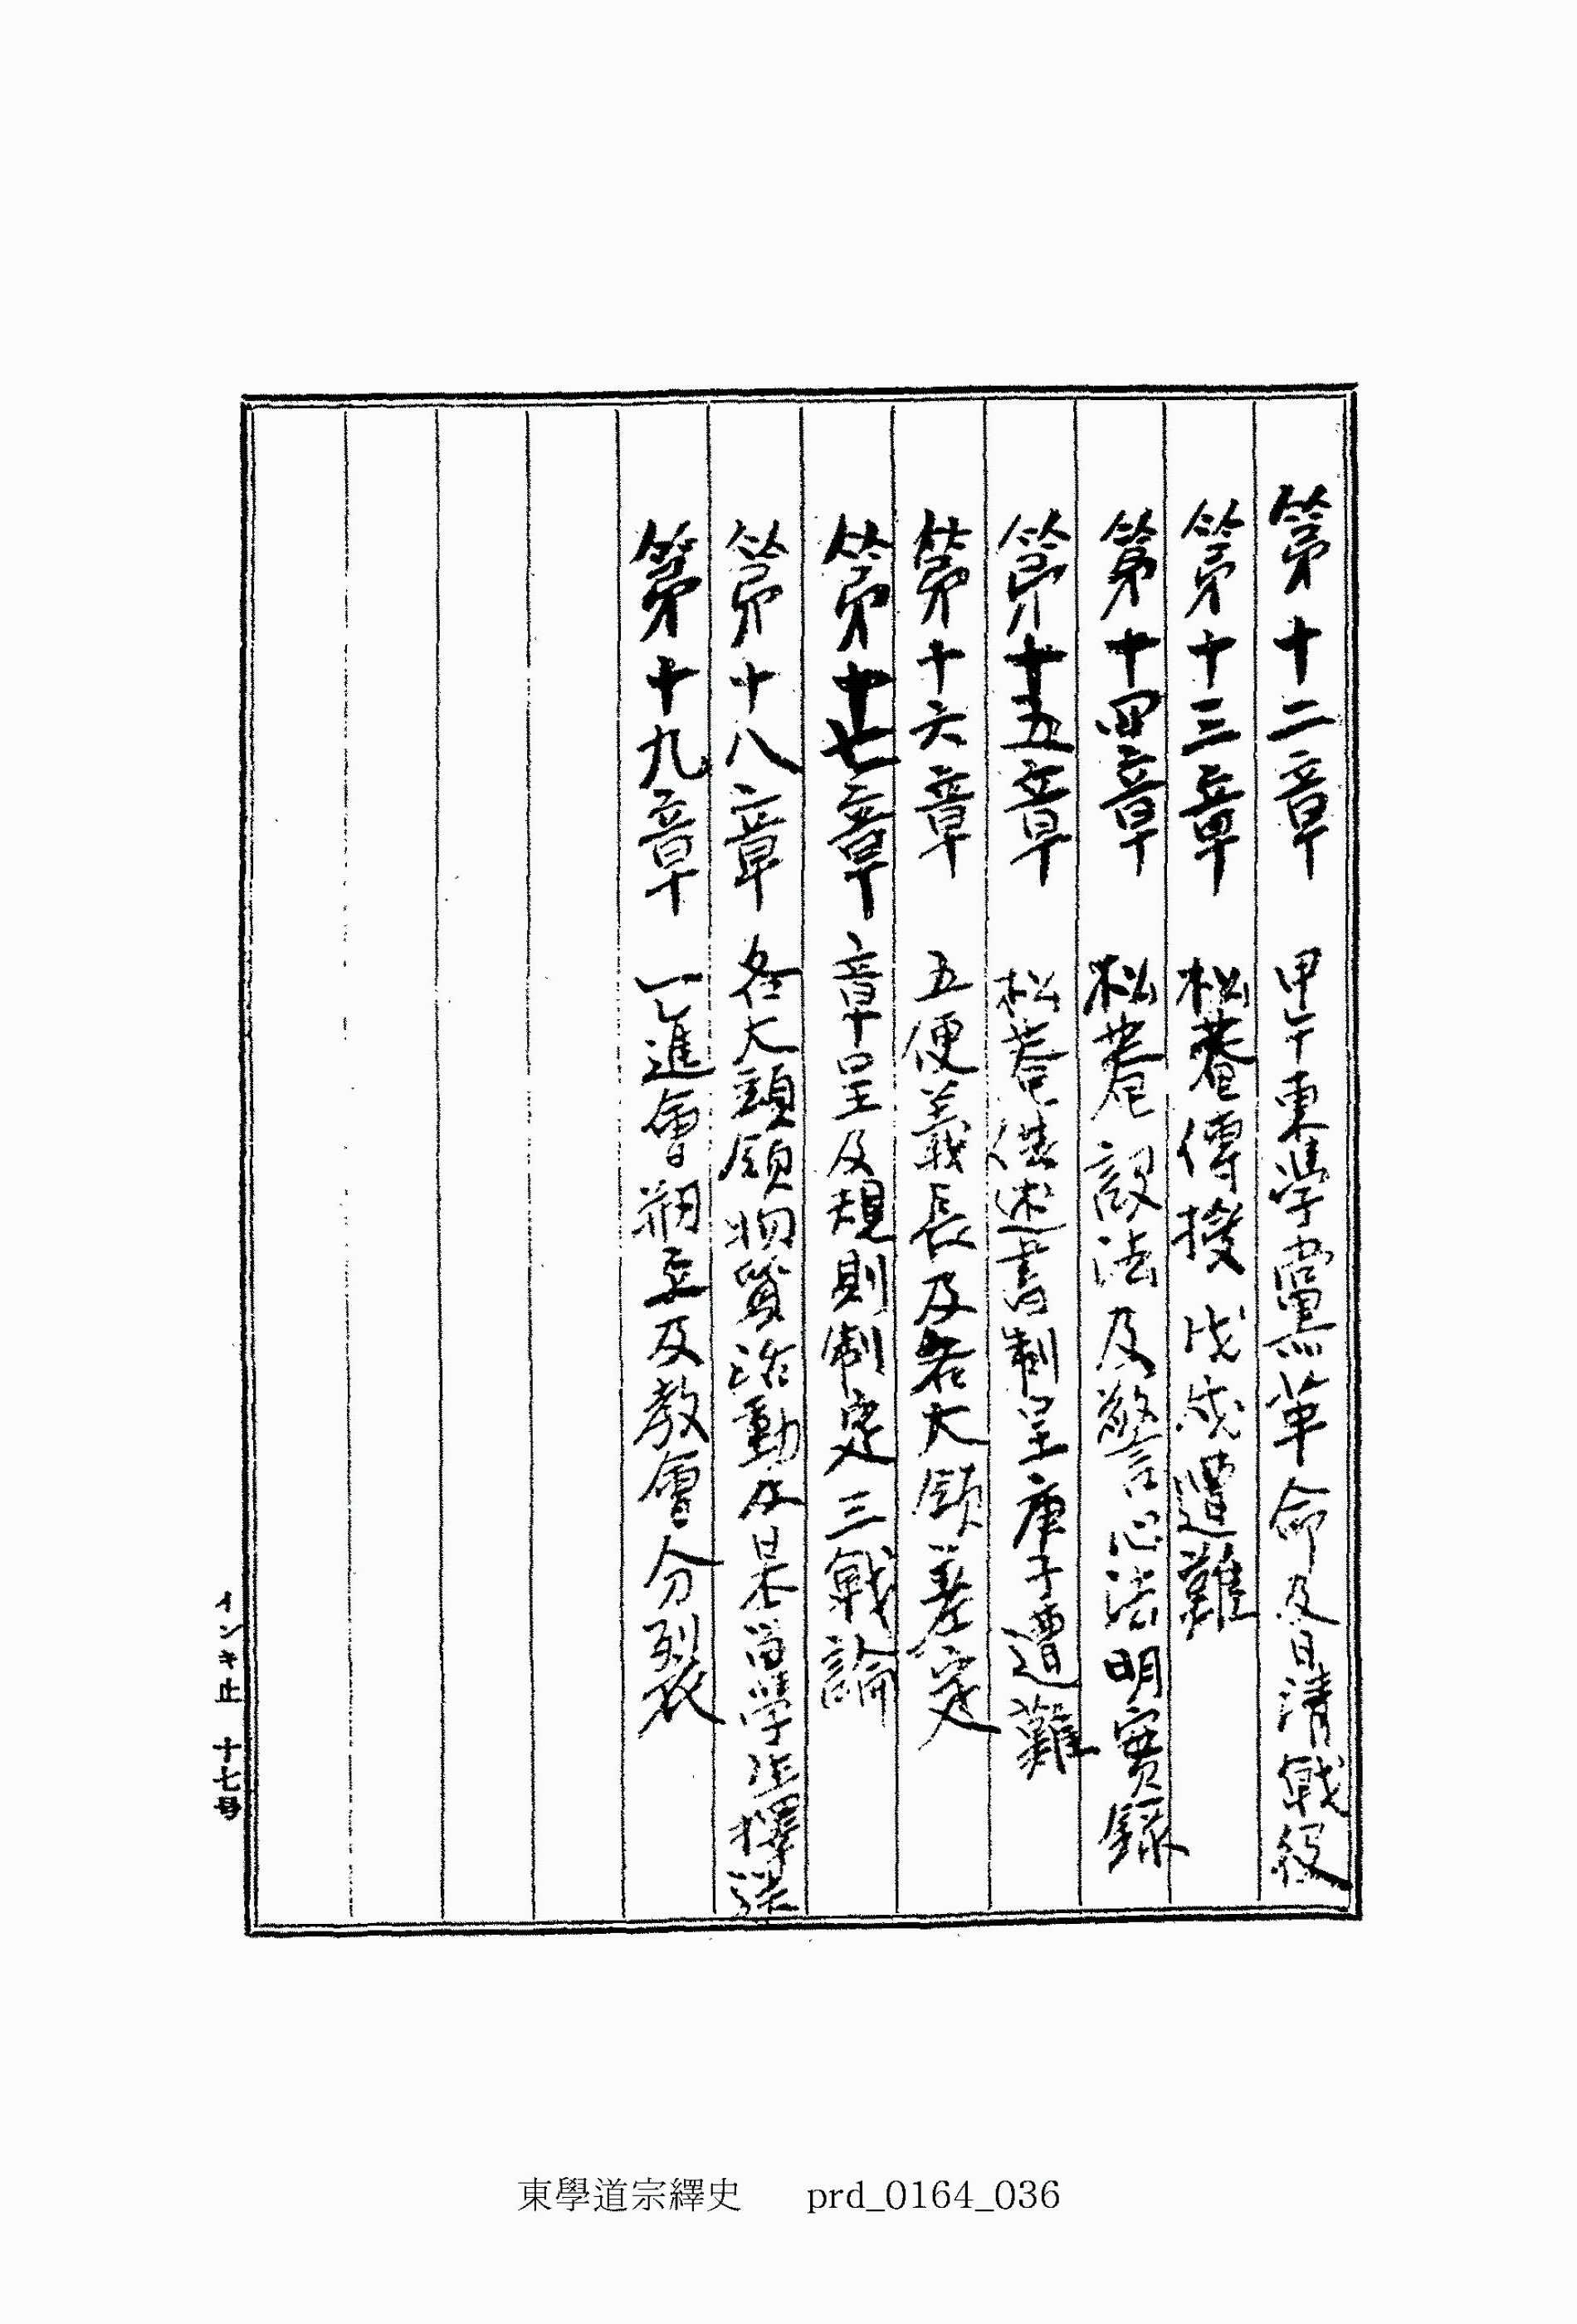 第十二章 甲午東学黨革命及日清戰役
第十三章 松菴傳授 戊戌遭難
第十四章 松菴設法及警心法明實錄
第十五章 松菴 述書制呈庚子遭難
第十六章 五便義長及各大領差定
第十七章 章呈及規則制定三戰論
第十八章 各大頭領物質治動及 留學生擇送
第十九章 一進會刱立及教會分裂
十七号
東學道宗繹史 prd_0164_036